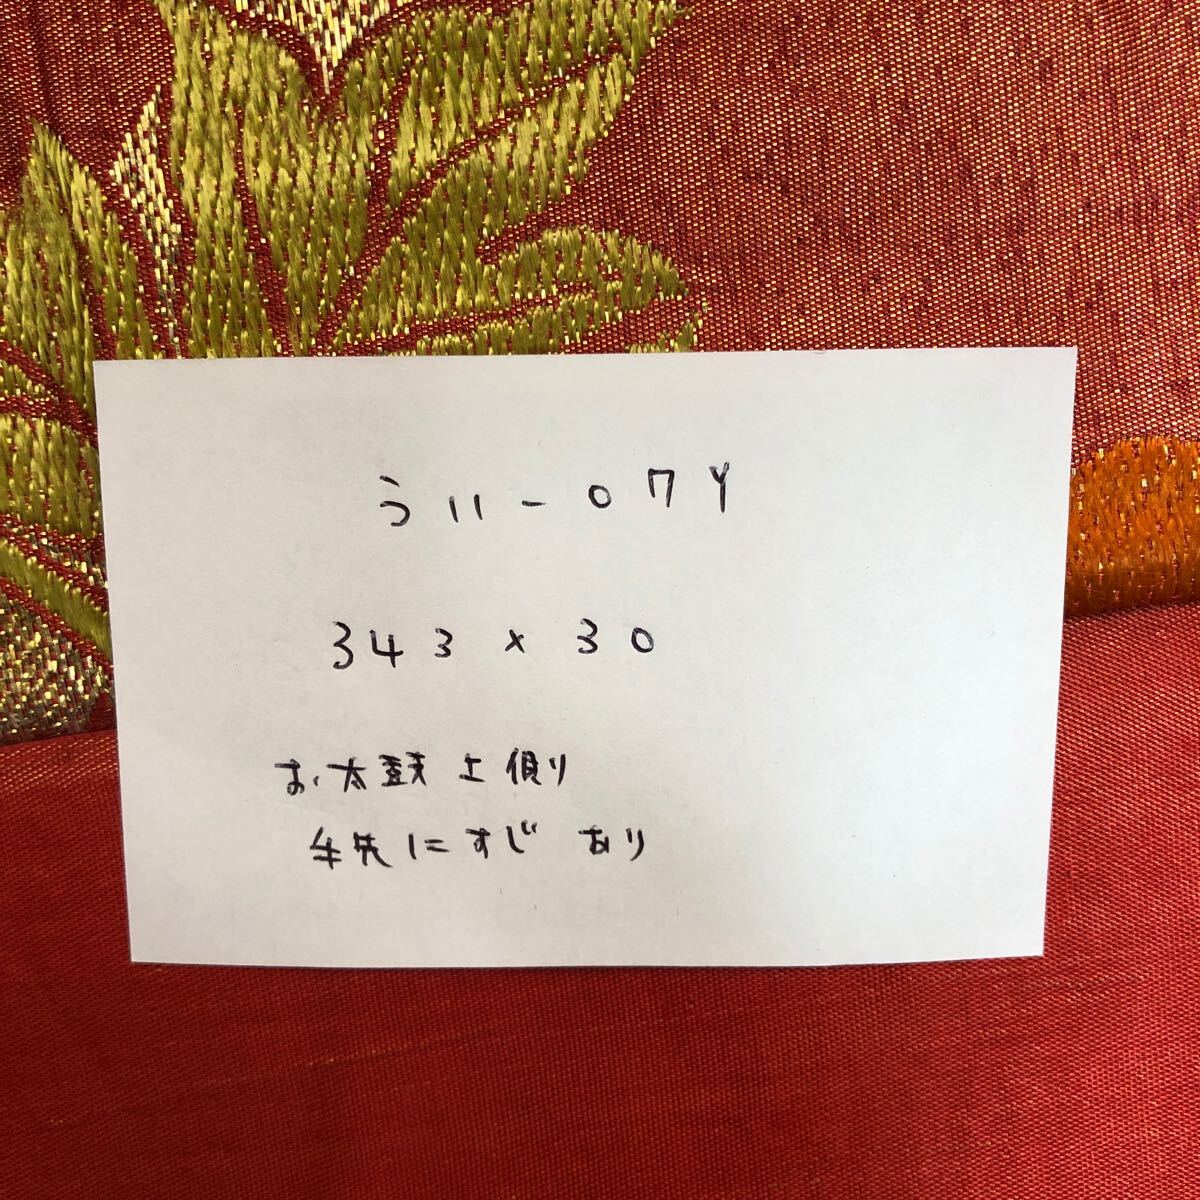 う11-07Y
343×30
お太鼓上側り
手先にすじあり